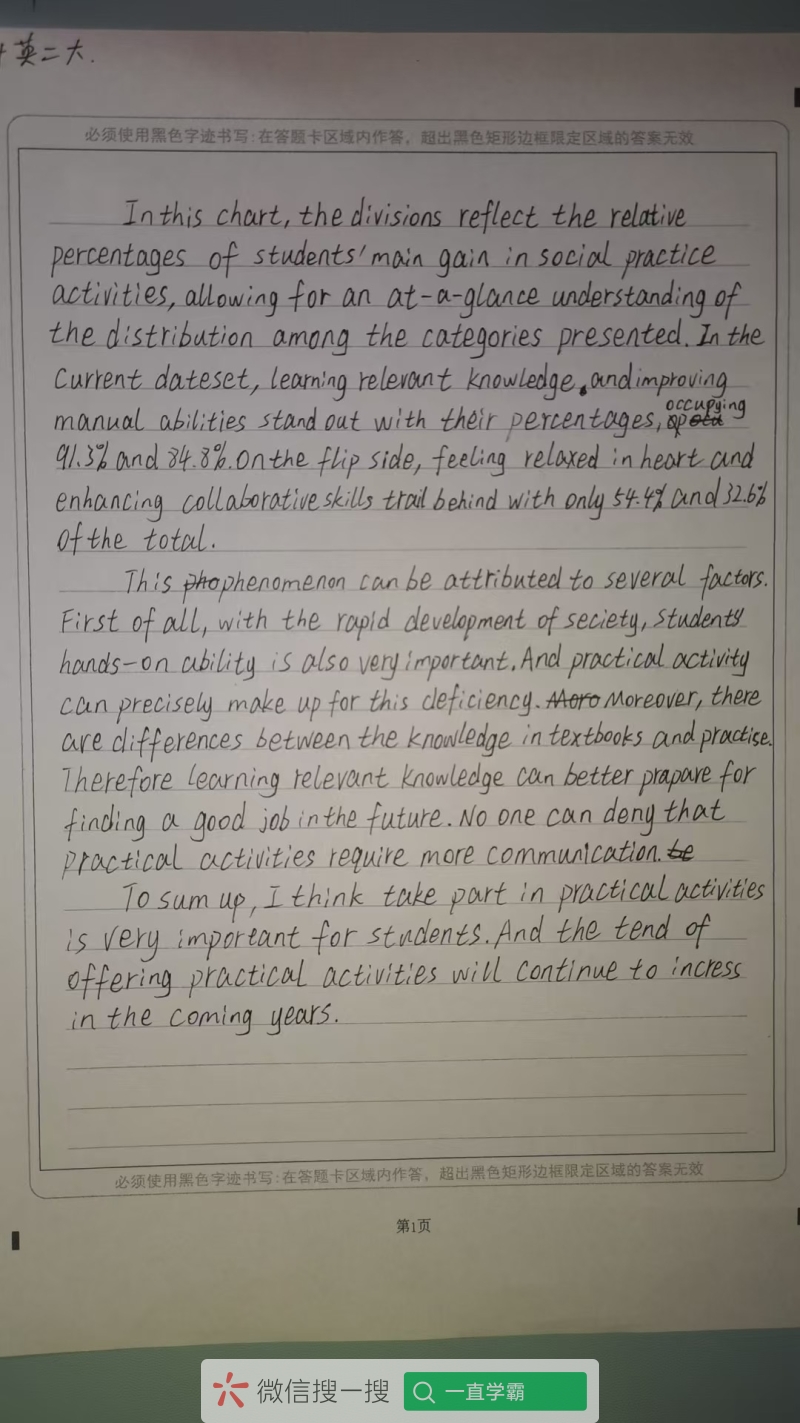 英二大.
必须使用黑色字迹书写:在答题卡区域内作答，超出黑色矩形边框限定区域的答案无效
In this chart, the divisions reflect the relative
percentages of students' main gain in social practice
activities, allowing for an at-a-glance understanding of
the distribution among the categories presented. In the
Current dateset, learning relevant knowledge, and improving
manual abilities stand out with their percentages, occupying
91.3% and 84.8%. On the flip side, feeling relaxed in heart and
enhancing collaborative skills trail behind with only 54.4% and 32.6%
of the total.
This phenomenon can be attributed to several factors.
First of all, with the rapid development of seciety, students'
hands-on ability is also very important. And practical activity
can precisely make up for this deficiency. Moreover, there
are differences between the knowledge in textbooks and practise.
Therefore learning relevant knowledge can better prapare for
finding a good job in the future. No one can deny that
practical activities require more communication.
To sum up, I think take part in practical activities
is very important for students. And the tend of
offering practical activities will continue to incress
in the coming years.
必须使用黑色字迹书写:在答题卡区域内作答，超出黑色矩形边框限定区域的答案无效
第1页
微信搜一搜 一直学霸